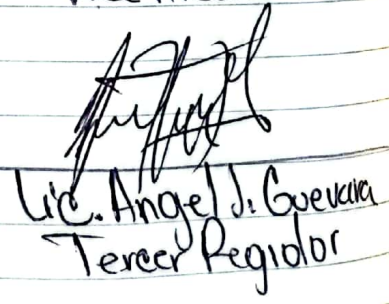 Lic. Angel J. Guevara
Tercer Regidor